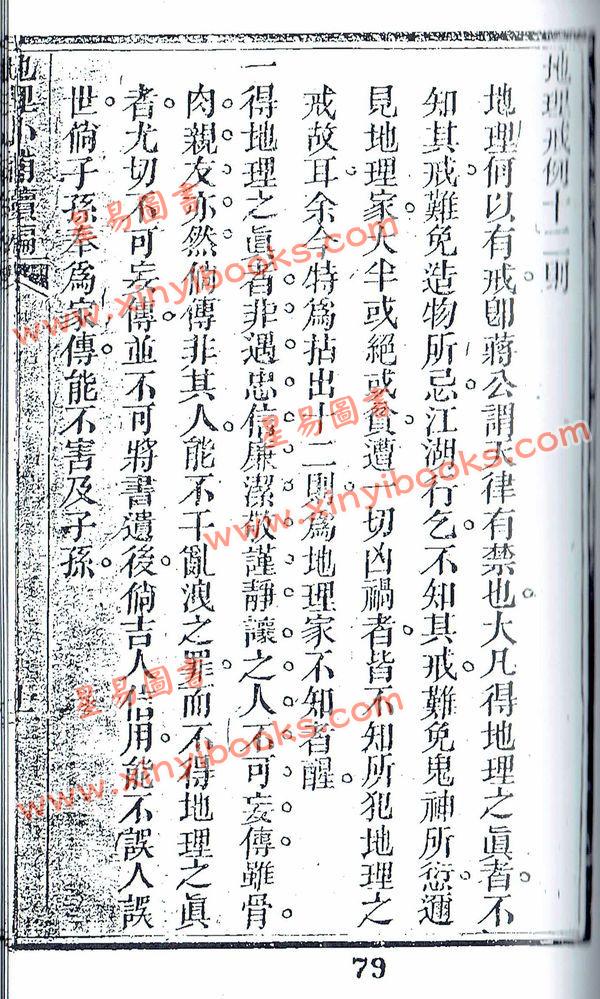 地理戒例十二則
地理何以有戒卽蔣公謂天律有禁也大凡得地理之眞者不
知其戒難免造物所忌江湖行乞不知其戒難免鬼神所愆邇
見地理家大半或絕或貧遭一切凶禍者皆不知所犯地理之
戒故耳余今特爲拈出十二則爲地理家不知者醒
一得地理之眞者非遇忠信廉潔敬謹靜讓之人不可妄傳雖骨
肉親友亦然倘傳非其人能不干亂洩之罪而不得地理之眞
者尤切不可妄傳並不可將書遺後倘吉人信用能不誤人誤
世倘子孫奉爲家傳能不害及子孫
79
星易圖書
www.xinyibooks.com
星易圖書
www.xinyibooks.com
星易圖書
www.xinyibooks.com